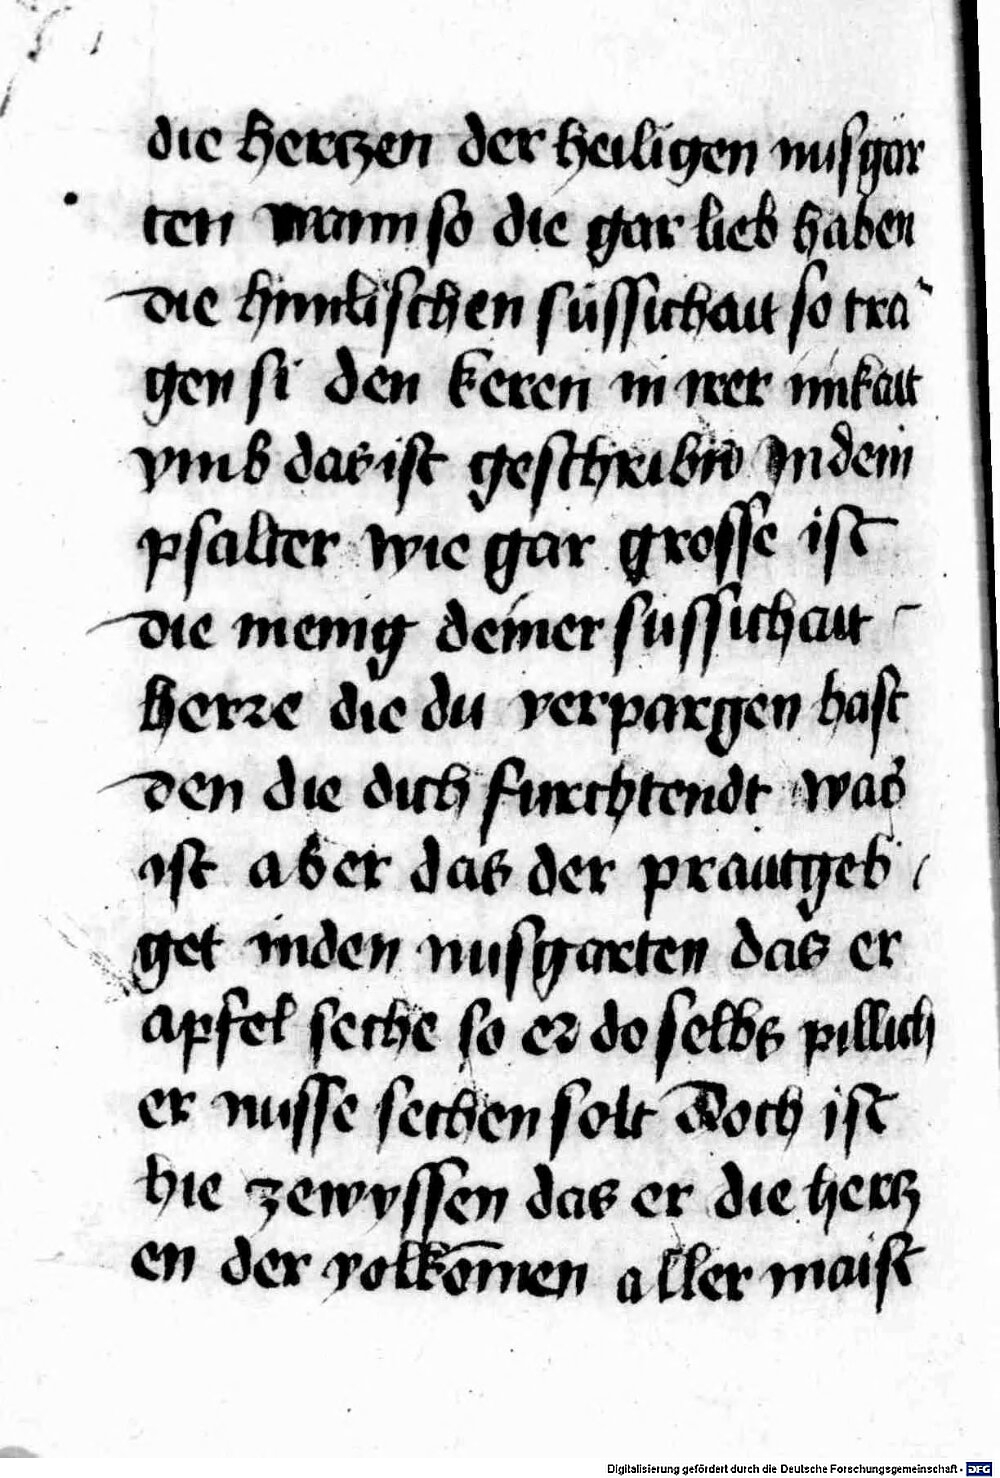 die hertzen der heiligen nusgar
ten wann so die gar lieb haben
die himlischen süssichait so tra
gen si den keren in irer innkait
vmb das ist geschribn̄ In dem
psalter wie gar grosse ist
die menig deiner süssichait
herre die du verpargen hast
den die dich furchtendt was
ist aber das der prautgeb
get in den nusgarten das er
apfel seche so er do selbs pillich
er nusse sechen solt Doch ist
hie ze wyssen das er die hertz
en der volkōmen aller maist
Digitalisierung gefördert durch die Deutsche Forschungsgemeinschaft - DFG